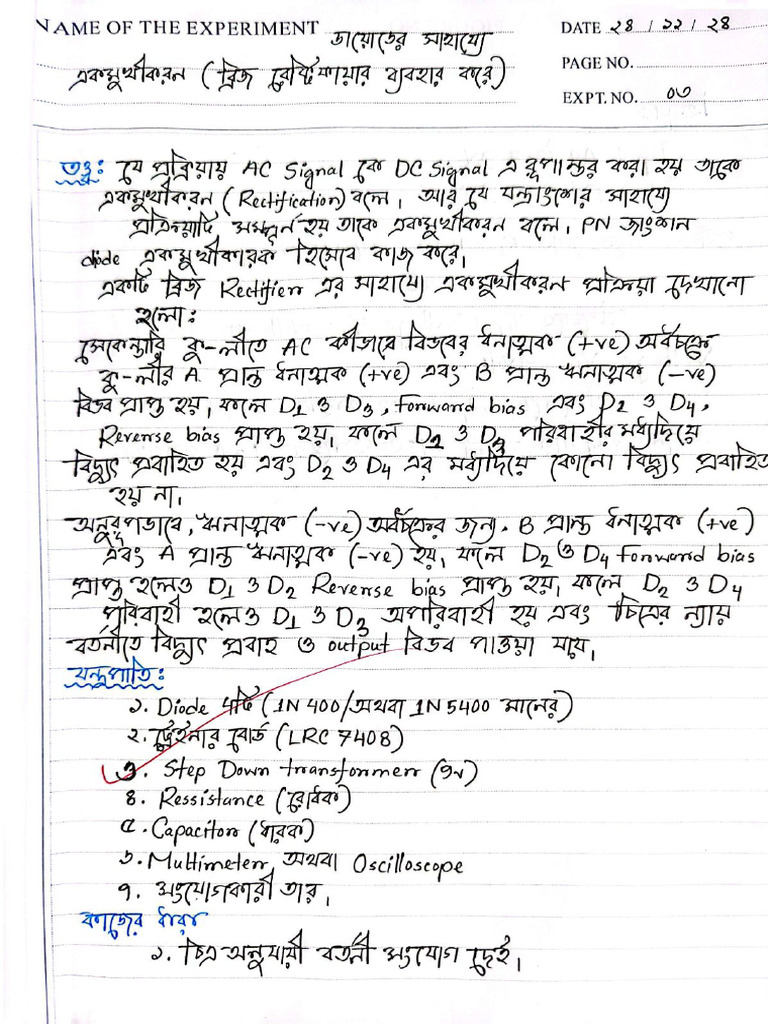 NAME OF THE EXPERIMENT ডায়োডের সাহায্যে
DATE ২৪/১১/২৪
একমুখীকরন (ব্রিজ রেক্টিফায়ার ব্যবহার করে)
PAGE NO.
EXPT. NO. ০৩
তত্ত্ব: যে প্রক্রিয়ায় AC Signal কে DC Signal এ রূপান্তর করা হয় তাকে
একমুখীকরন (Rectification) বলে। আর যে যন্ত্রাংশের সাহায্যে
প্রক্রিয়াটি সম্পূর্ন হয় তাকে একমুখীকরন বলে। PN জাংশান
diode একমুখীকারক হিসেবে কাজ করে।
একটি ব্রিজ Rectifier এর সাহায্যে একমুখীকরন প্রক্রিয়া দেখানো
হলো:
সেকেন্ডারি কু-লীতে AC বিভবের ধনাত্মক (+ve) অর্ধচক্রে
কু-লীর A প্রান্ত ধনাত্মক (+ve) এবং B প্রান্ত ঋনাত্মক (-ve)
বিভব প্রাপ্ত হয়। ফলে D1 ও D3, forward bias এবং D2 ও D4,
Reverse bias প্রাপ্ত হয়। ফলে D2 ও D3 পরিবাহীর মধ্যদিয়ে
বিদ্যুৎ প্রবাহিত হয় এবং D2 ও D4 এর মধ্যদিয়ে কোনো বিদ্যুৎ প্রবাহিত
হয় না।
অনুরূপভাবে, ঋনাত্মক (-ve) অর্ধচক্রের জন্য, B প্রান্ত ধনাত্মক (+ve)
এবং A প্রান্ত ঋনাত্মক (-ve) হয়, ফলে D2 ও D4 forward bias
প্রাপ্ত হলেও D1 ও D2 Reverse bias প্রাপ্ত হয়। ফলে D2 ও D4
পরিবাহী হলেও D1 ও D3 অপরিবাহী হয় এবং চিত্রের ন্যায়
বর্তনীতে বিদ্যুৎ প্রবাহ ও output বিভব পাওয়া যায়।
যন্ত্রপাতি:
১. Diode ৪টি (1N 400/অথবা 1N 5400 মানের)
২. ট্রেইনার বোর্ড (LRC 7408)
৩. Step Down transformer (9v)
৪. Ressistance (রোধক)
৫. Capacitor (ধারক)
৬. Multimeter অথবা Oscilloscope
৭. সংযোগকারী তার।
কাজের ধারা
১. চিত্র অনুযায়ী বর্তনী সংযোগ দেই।